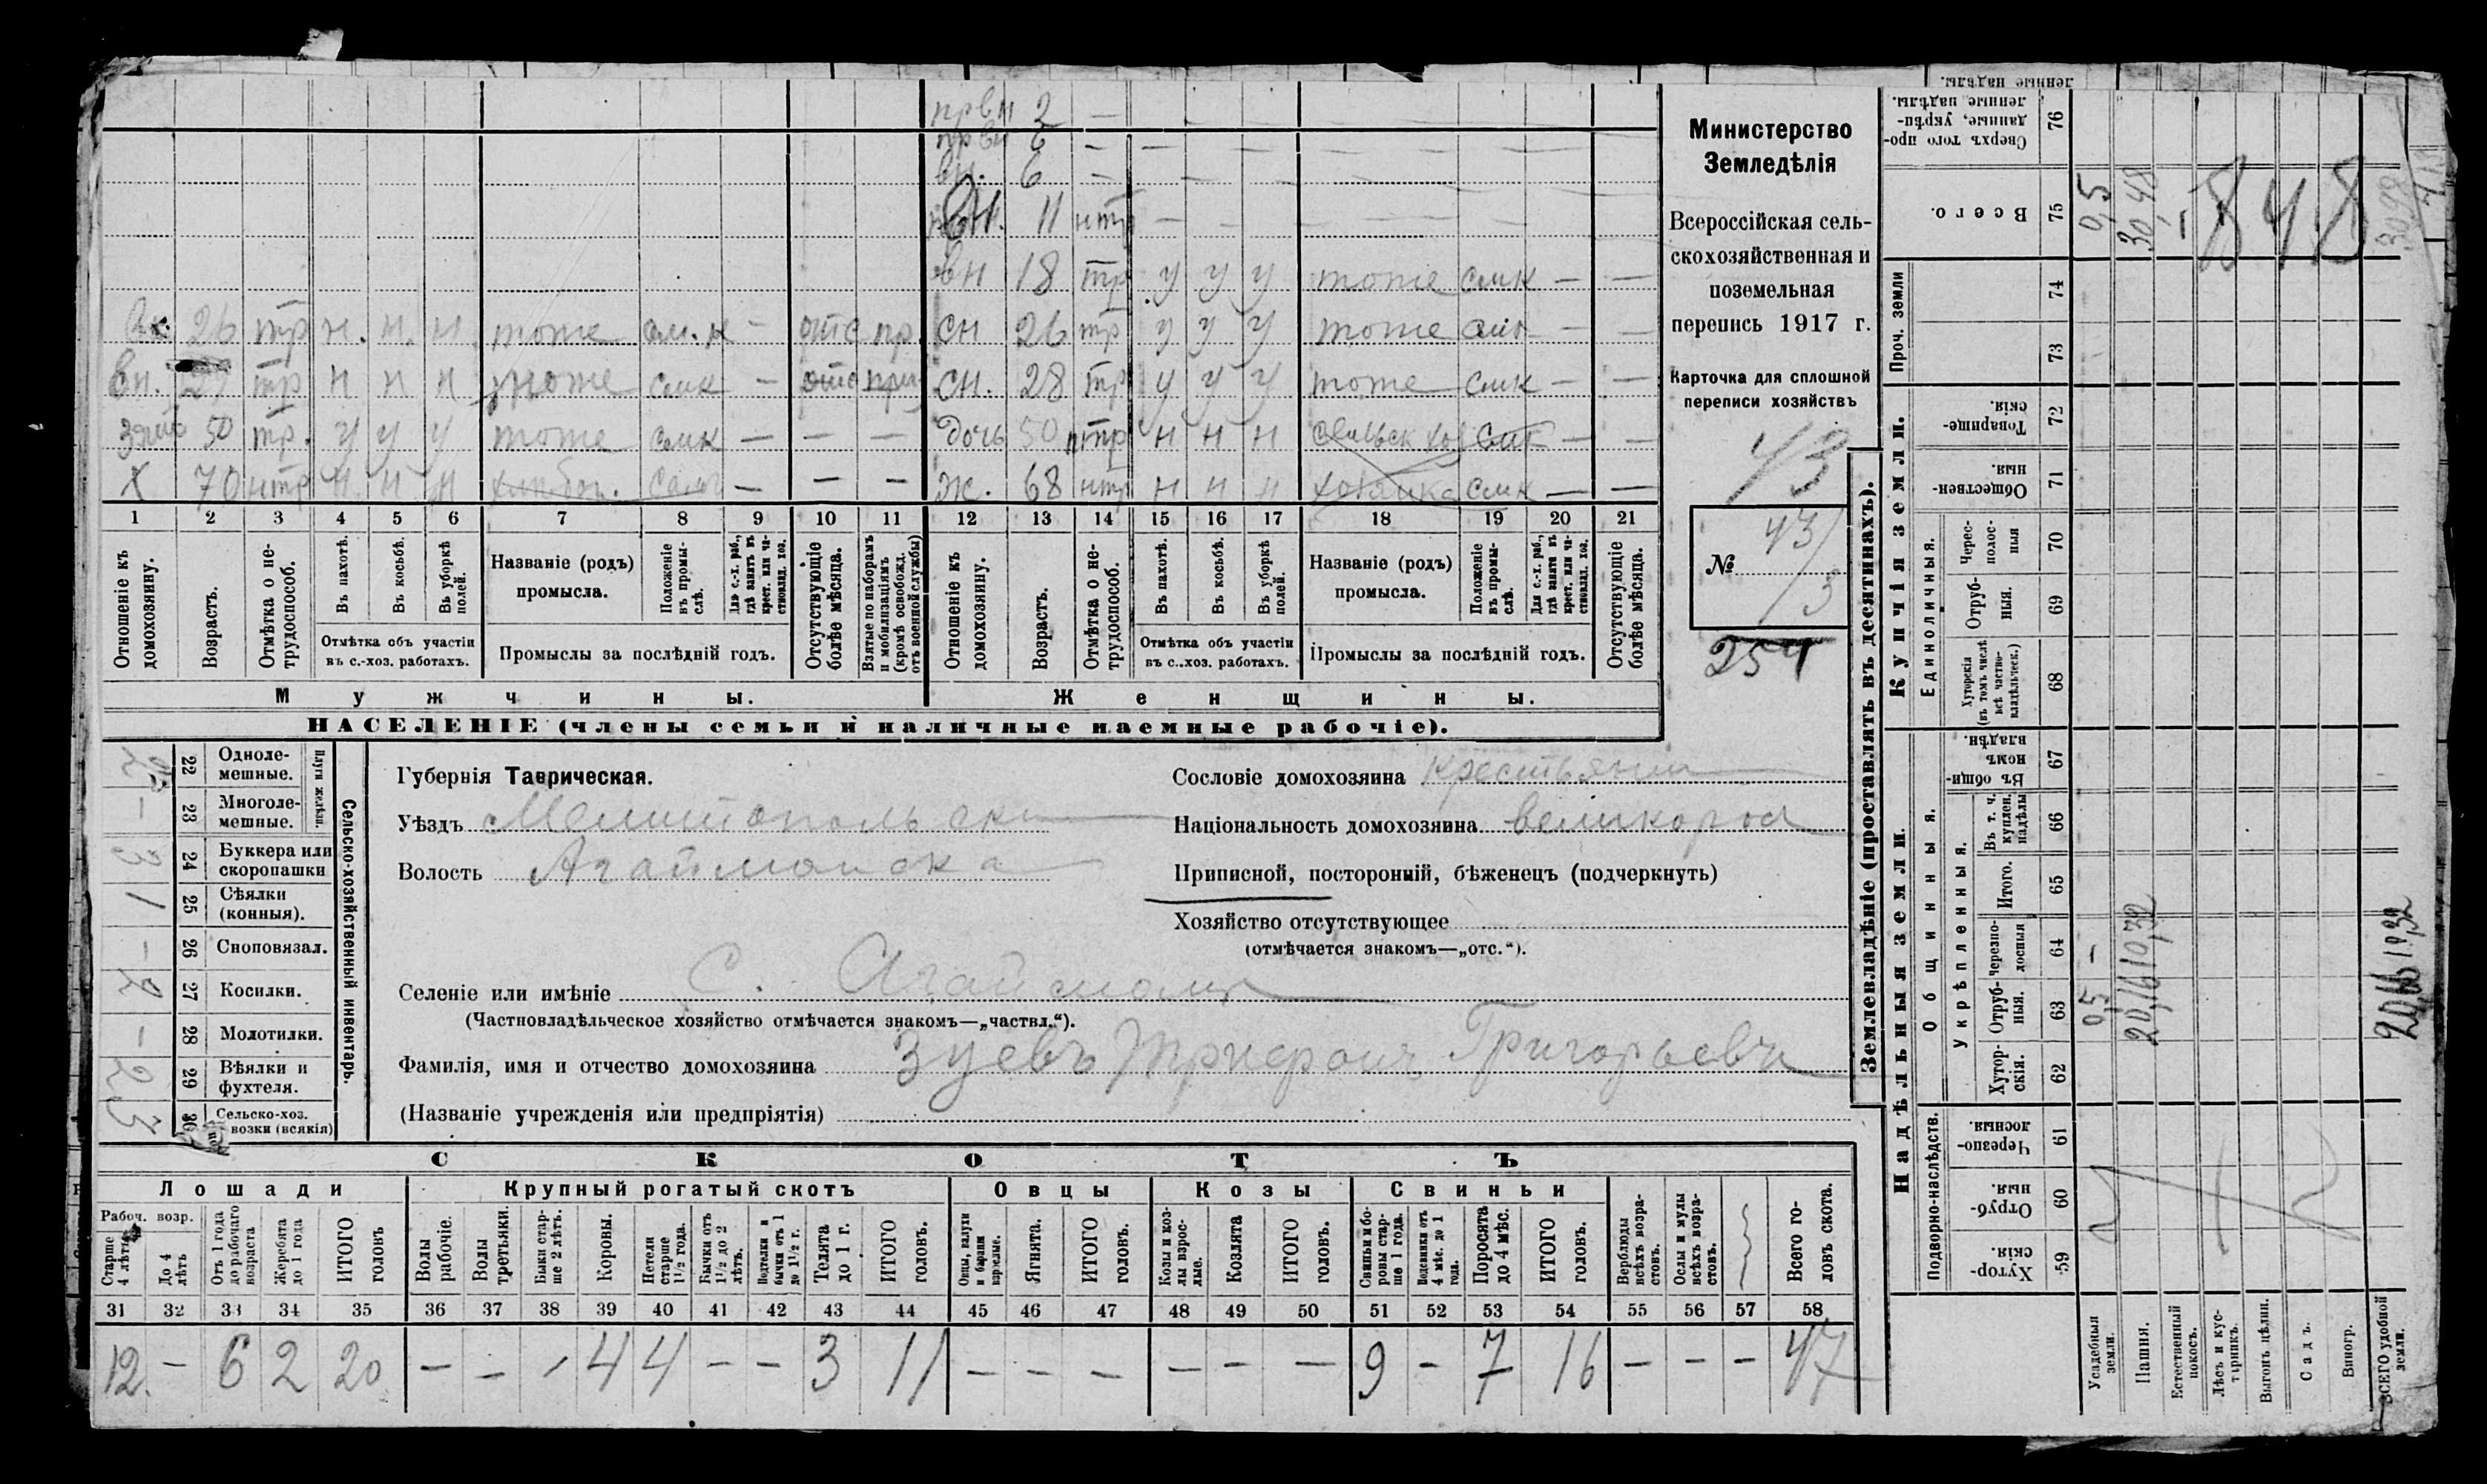 првн 2 —
првн 6 — — — — — — — —
вн. 6 — — — — — — — —
11 нтр — — — — — — —
вн 18 тр у у у тоже смк — —
26 тр н. н. н тоже см.к — отс пр. сн 26 тр у у у тоже смк — —
вн. тр н н н тоже смк — отс сн. 28 тр у у у тоже смк — —
зять 50 тр. у у у тоже смк — — — дочь 50 птр н н н сельск хоз — —
х 70 нтр н н н — — — ж. 68 нтр н н н хозяйка смк — —
1 2 3 4 5 6 7 8 9 10 11 12 13 14 15 16 17 18 19 20 21
Отношеніе къ домохозяину.
Возрастъ.
Отмѣтка о не-трудоспособ.
Въ пахотѣ.
Въ косьбѣ.
Въ уборкѣ полей.
Отмѣтка объ участіи
въ с.-хоз. работахъ.
Названіе (родъ)
промысла.
Положеніе въ промы-слѣ.
Для с.-х. раб., гдѣ занятъ въ крест. или ча-стновлад. хоз.
Промыслы за послѣдній годъ.
Отсутствующіе болѣе мѣсяца.
Взятые по наборамъ и мобилизаціямъ (кромѣ освобожд. отъ военной службы)
Отношеніе къ домохозяину.
Возрастъ.
Отмѣтка о не-трудоспособ.
Въ пахотѣ.
Въ косьбѣ.
Въ уборкѣ полей.
Отмѣтка объ участіи
въ с..хоз. работахъ.
Названіе (родъ)
промысла.
Положеніе въ промы-слѣ.
Для с.-х. раб., гдѣ занятъ въ крест. или ча-стновлад. хоз.
Промыслы за послѣдній годъ.
Отсутствующіе болѣе мѣсяца.
Мужчины.
Женщины.
НАСЕЛЕНІЕ (члены семьи и наличные наемные рабочіе).
Министерство
Земледѣлія
Всероссійская сель-
скохозяйственная и
поземельная
перепись 1917 г.
Карточка для сплошной
переписи хозяйствъ
43
№ 43/3
254
Сельско-хозяйственный инвентарь.
Плуги желѣзн.
22 Одноле-мешные.
— 23 Многоле-мешные.
3 24 Буккера или скоропашки
1 25 Сѣялки (конныя).
— 26 Сноповязал.
2 27 Косилки.
— 28 Молотилки.
2 29 Вѣялки и фухтеля.
3 30 Сельско-хоз. повозки (всякія)
Губернія Таврическая.
Уѣздъ Мелитопольски
Волость Агайманска
Сословіе домохозяина Крестьянин
Національность домохозяина великоросс
Приписной, посторонній, бѣженецъ (подчеркнуть)
Хозяйство отсутствующее
(отмѣчается знакомъ—„отс.“).
Селеніе или имѣніе С. Агайманы
(Частновладѣльческое хозяйство отмѣчается знакомъ—„частвл.“).
Фамилія, имя и отчество домохозяина Зуевъ Трифонъ Григорьевъ
(Названіе учрежденія или предпріятія)
СКОТЪ
Лошади Крупный рогатый скотъ Овцы Козы Свиньи
Рабоч. возр.
Старше 4 лѣтъ
До 4 лѣтъ
Отъ 1 года до рабочаго возраста
Жеребята до 1 года
ИТОГО головъ
Волы рабочіе.
Волы третьяки.
Быки стар-ше 2 лѣтъ.
Коровы.
Нетели старше 1½ года.
Бычки отъ 1½ до 2 лѣтъ.
Подтелки и бычки отъ 1 до 1½ г.
Телята до 1 г.
ИТОГО головъ.
Овцы, валухи и бараны взрослые.
Ягнята.
ИТОГО головъ.
Козы и коз-лы взрос-лые.
Козлята
ИТОГО головъ.
Свиньи и бо-ровы стар-ше 1 года.
Подсвинки отъ 4 мѣс. до 1 года.
Поросята до 4 мѣс.
ИТОГО головъ.
Верблюды всѣхъ возра-стовъ.
Ослы и мулы всѣхъ возра-стовъ.
Всего го-ловъ скота.
31 32 33 34 35 36 37 38 39 40 41 42 43 44 45 46 47 48 49 50 51 52 53 54 55 56 57 58
12. — 6 2 20 — — — 4 4 — — 3 11 — — — — — — 9 — 7 16 — — — 47
Землевладѣніе (проставлять въ десятинахъ).
Купчія земли.
Надѣльныя земли.
Сверхъ того про-данные, укрѣп-ленные надѣлы. 76
Всего. 75 0,5 30,48 30,98
Проч. земли 74
73
Товарище-скія. 72
Обществен-ныя. 71
Единоличныя.
Черес-полос-ныя 70
Отруб-ныя. 69
Хуторскія (въ томъ числѣ всѣ частно-владѣльческ.) 68
Общинныя.
Въ общи-номъ владѣн. 67
Укрѣпленныя.
Въ т. ч. куплен. надѣлы 66
Итого. 65
Черезпо-лосныя 64 — 10,32 10,32
Отруб-ныя. 63 0,5 20,16 20,66
Хутор-скія. 62
Подворно-наслѣдств.
Черезпо-лосныя. 61
Отруб-ныя. 60
Хутор-скія. 59
Усадебныя земли.
Пашня.
Естественный покосъ.
Лѣсъ и кус-тарникъ.
Выгонъ цѣлин.
Садъ.
Виногр.
ВСЕГО удобной земли.